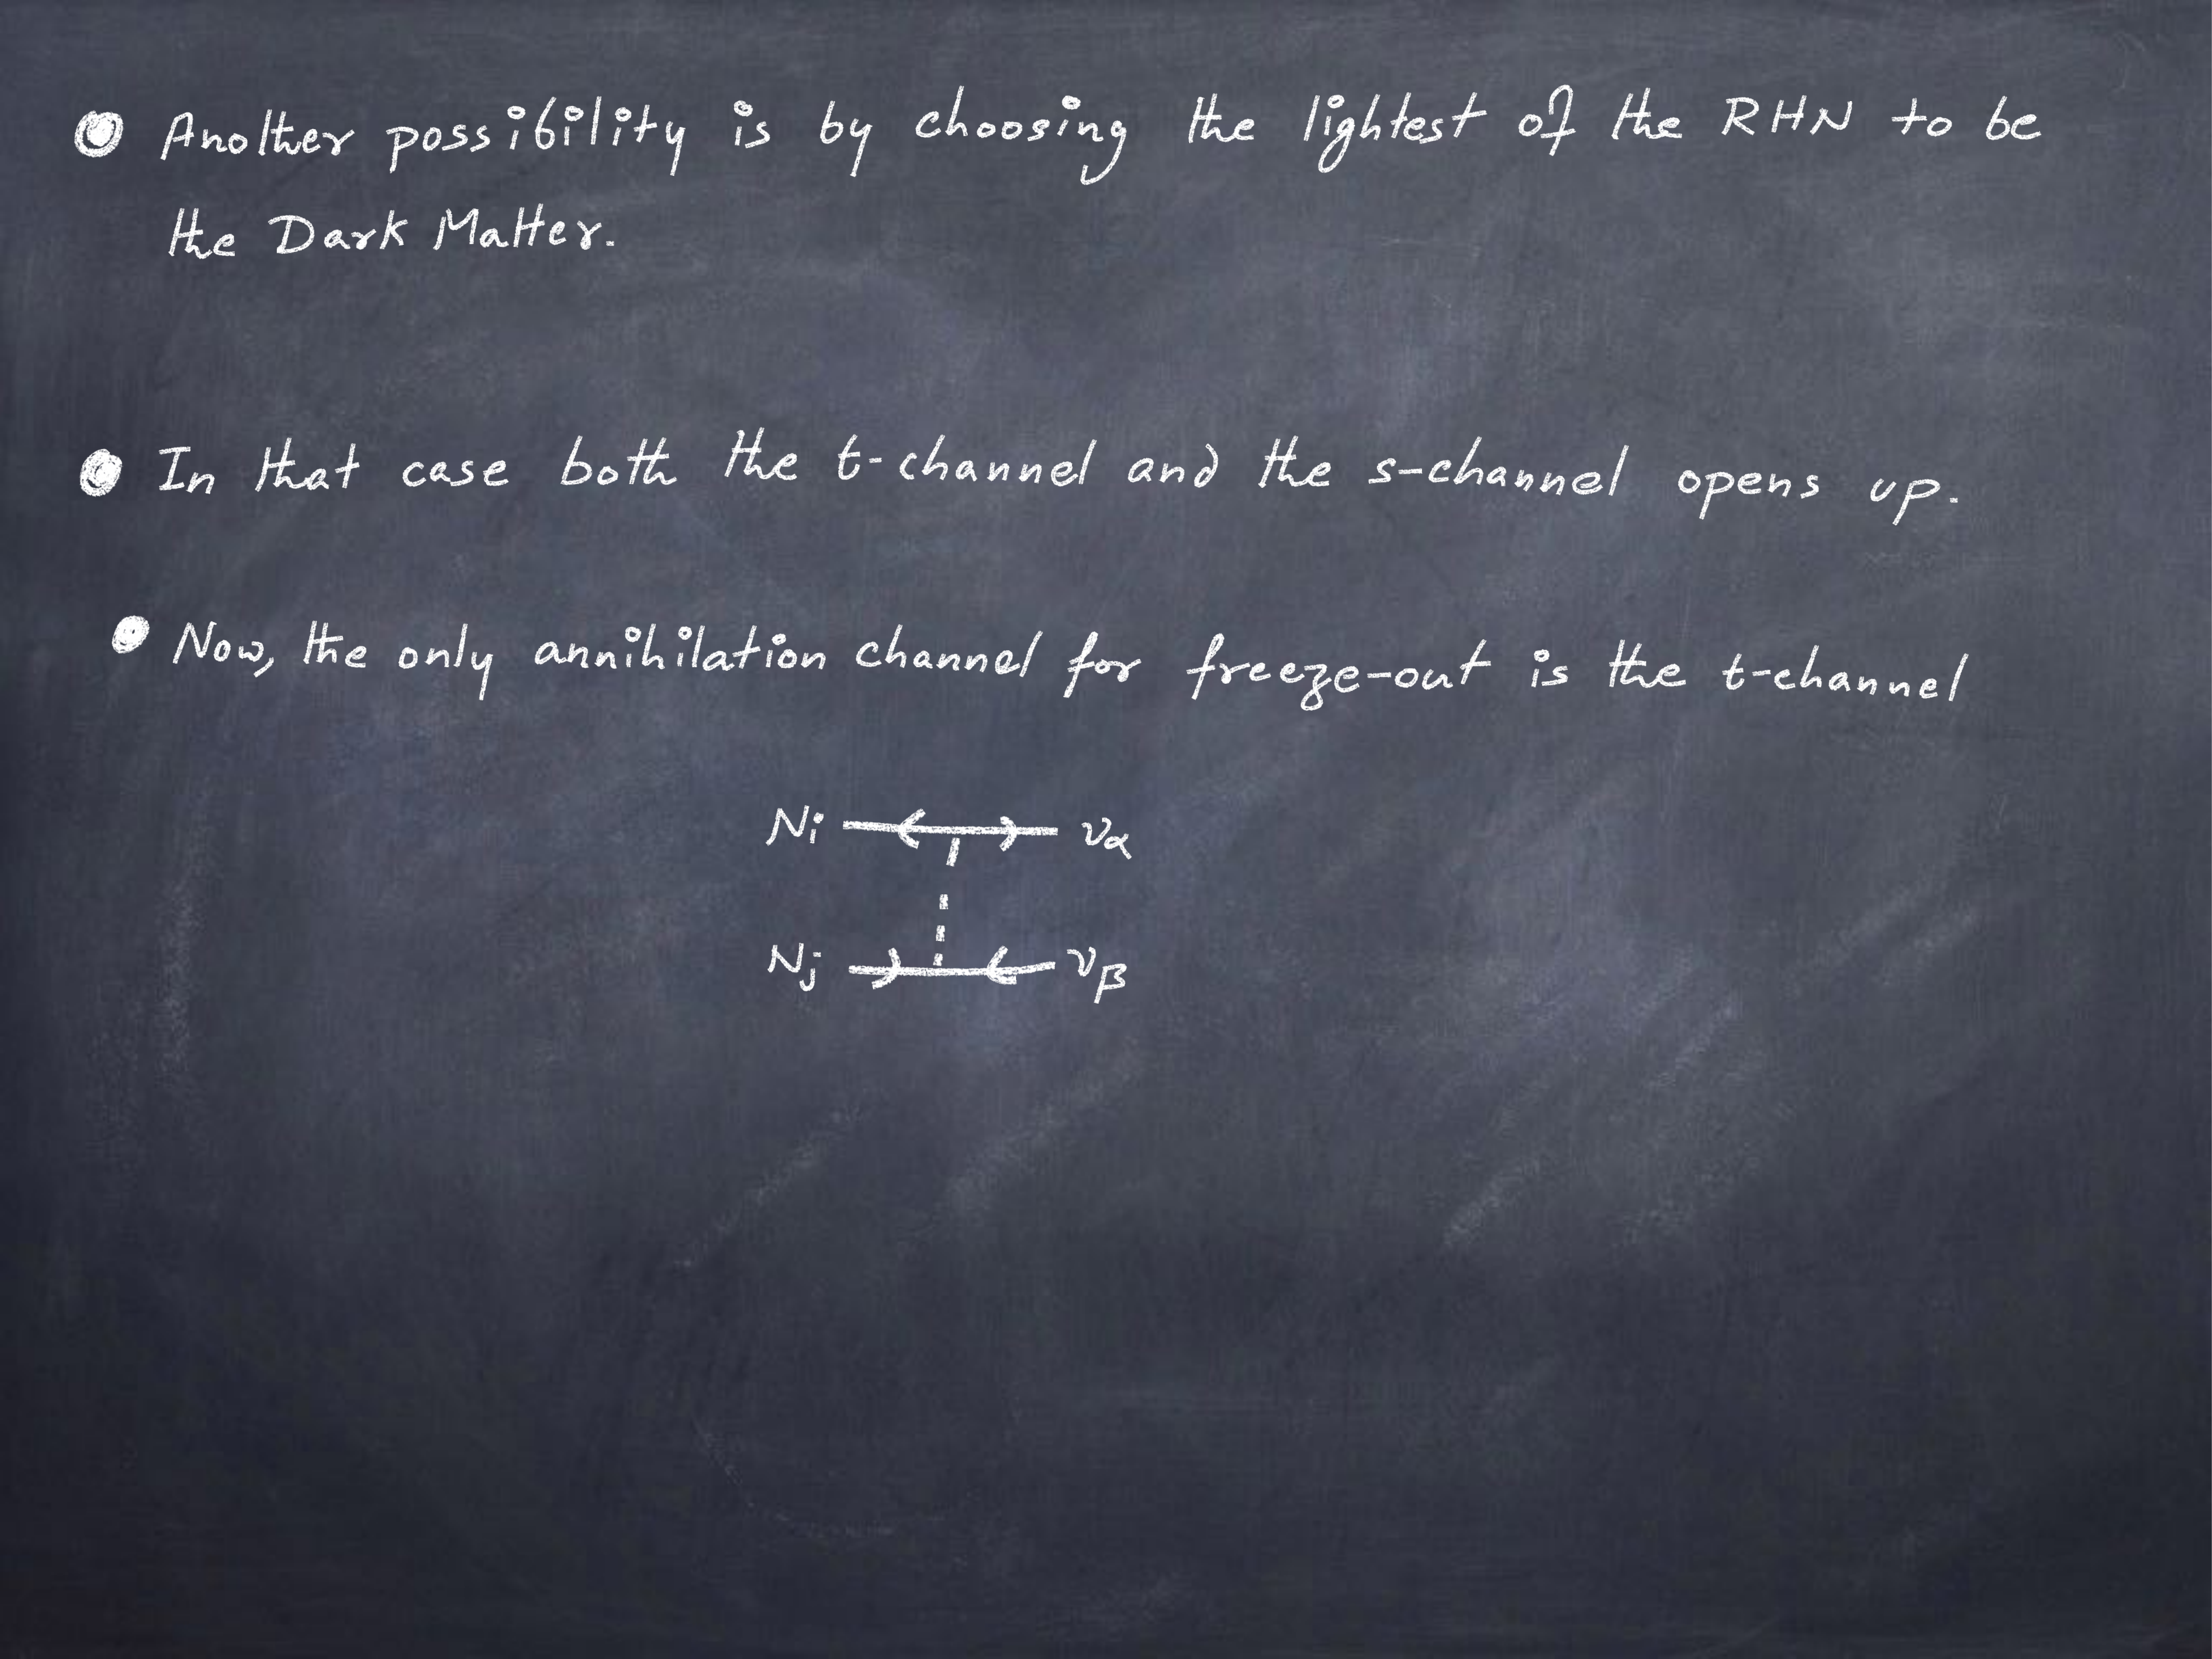 Another possibility is by choosing the lightest of the RHN to be
the Dark Matter.
In that case both the t-channel and the s-channel opens up.
Now, the only annihilation channel for freeze-out is the t-channel
Ni να
Nj νβ